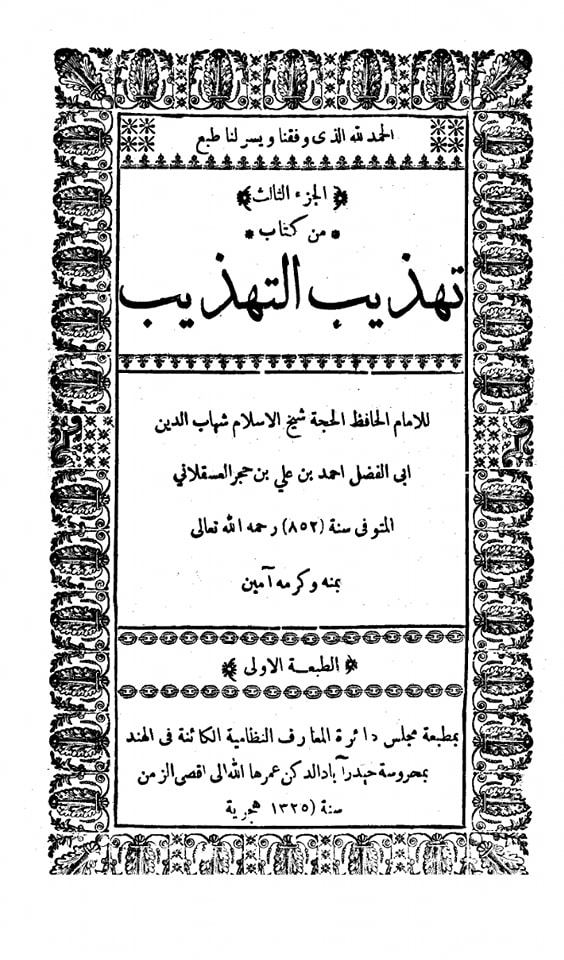 الحمد لله الذى وفقنا ويسر لنا طبع
الجزء الثالث
* من كتاب *
تهذيب التهذيب
للامام الحافظ الحجة شيخ الاسلام شهاب الدين
ابى الفضل احمد بن علي بن حجر العسقلاني
المتوفى سنة (٨٥٢) رحمه الله تعالى
بمنه وكرمه آمين
الطبعة الاولى
بمطبعة مجلس دائرة المعارف النظامية الكائنة فى الهند
بمحروسة حيدرآباد الدكن عمرها الله الى اقصى الزمن
سنة (١٣٢٥ هجرية